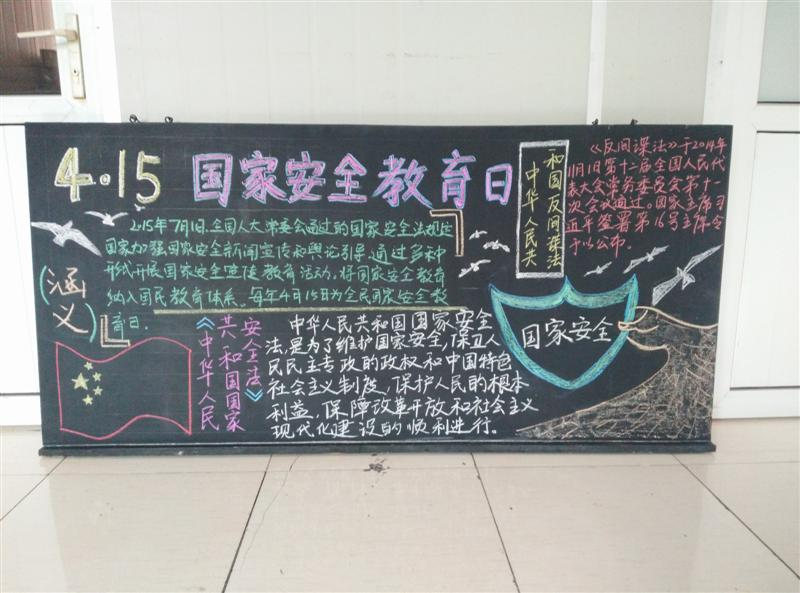 4.15 国家安全教育日
(涵义)
2015年7月1日,全国人大常委会通过的国家安全法规定
国家加强国家安全新闻宣传和舆论引导,通过多种
形式开展国家安全宣传教育活动,将国家安全教育
纳入国民教育体系。每年4月15日为全民国家安全教
育日.
中华人民共
和国反间谍法
《反间谍法》于2014年
11月1日第十二届全国人民代
表大会常务委员会第十一
次会议通过。国家主席习
近平签署第16号主席令
予以公布.
《中华人民
共和国国家
安全法》
中华人民共和国国家安全
法,是为了维护国家安全,保卫人
民民主专政的政权和中国特色
社会主义制度,保护人民的根本
利益,保障改革开放和社会主义
现代化建设的顺利进行。
国家安全